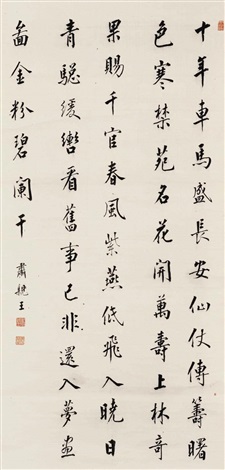 十年車馬盛長安仙仗傳籌曙
色寒禁苑名花開萬壽上林奇
果賜千官春風紫燕低飛入曉日
青驄緩轡看舊事已非還入夢畫
圖金粉碧闌干
肅親王